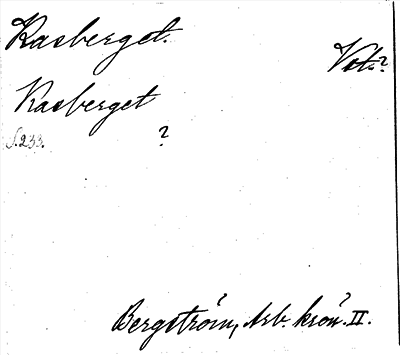 Kasberget.
Vst.?
Kasberget
S. 233.
?
Bergström, Arb. krön. II.